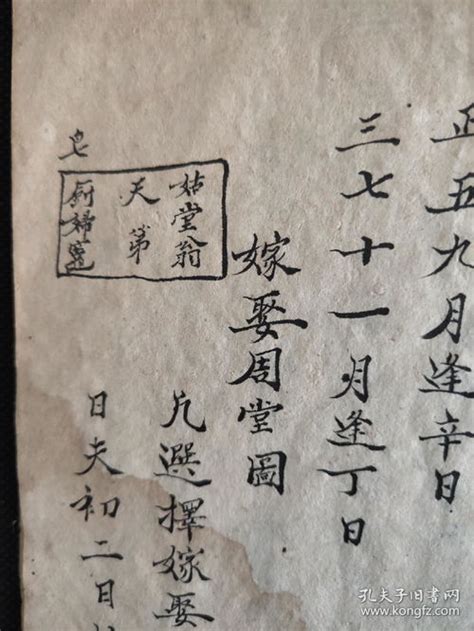 正五九月逢辛日
三七十一月逢丁日
嫁娶周堂圖
姑堂翁
天 第
廚婦竈
凡選擇嫁娶
日夫初二日
孔夫子旧书网
www.kongfz.com